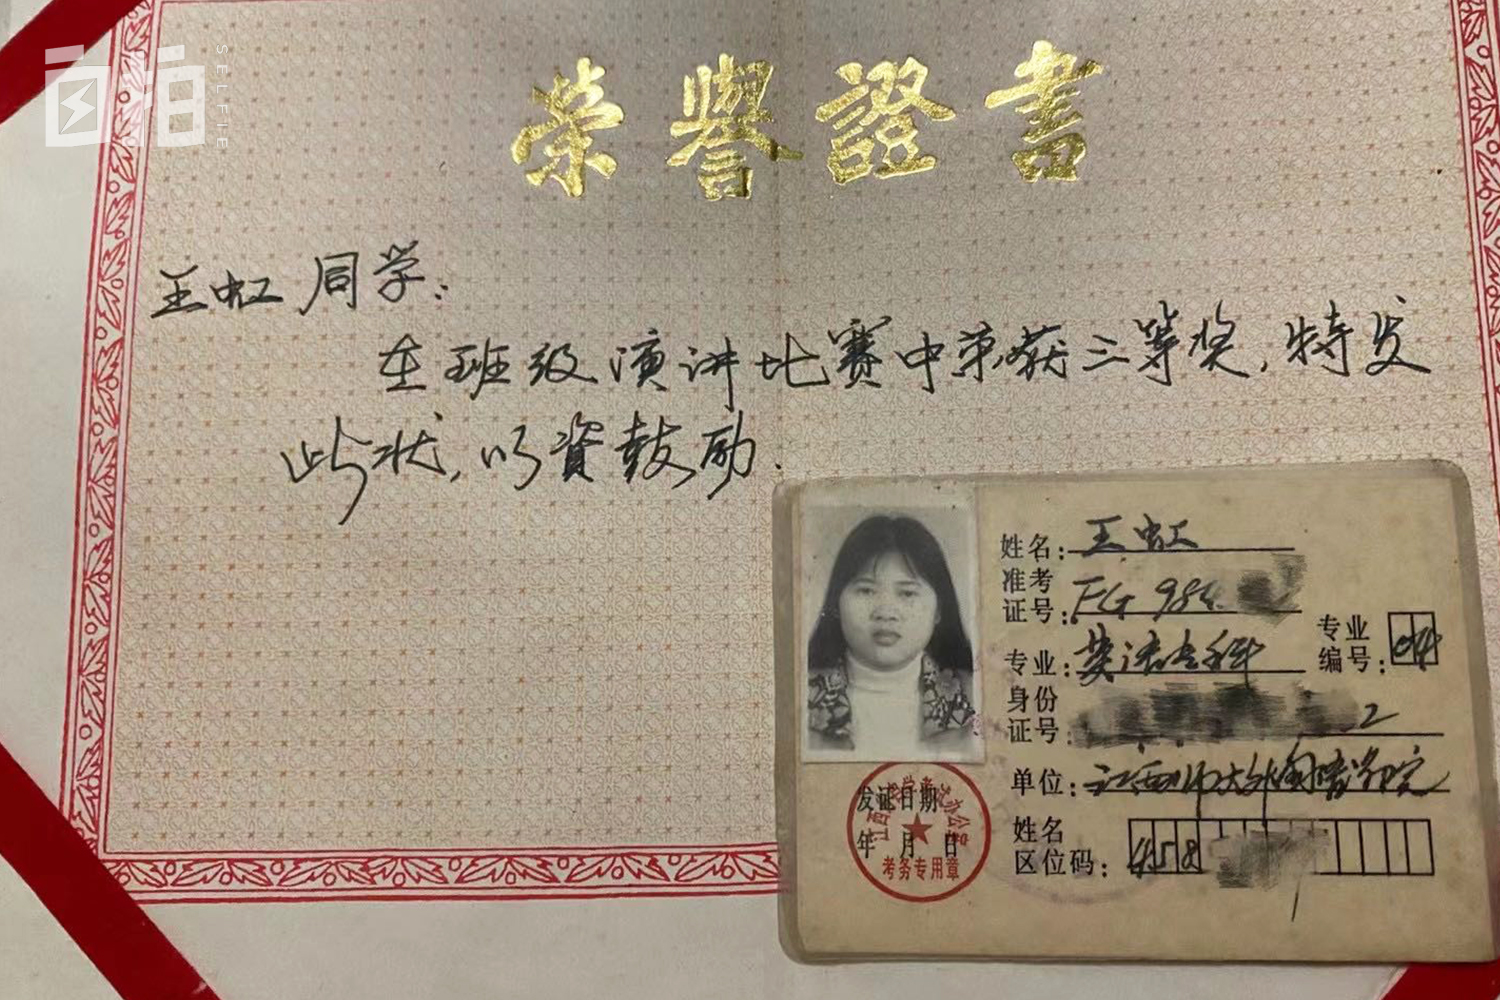 自拍
SELFIE
荣譽證書
王虹同学：
在班级演讲比赛中荣获三等奖，特发
此状，以资鼓励．
姓名：王虹
准考
证号：FG 98
专业：英语专科
专业
编号：04
身份
证号：2
单位：江西师大外国语学院
发证日期
年 月 日
考务专用章
姓名
区位码：458